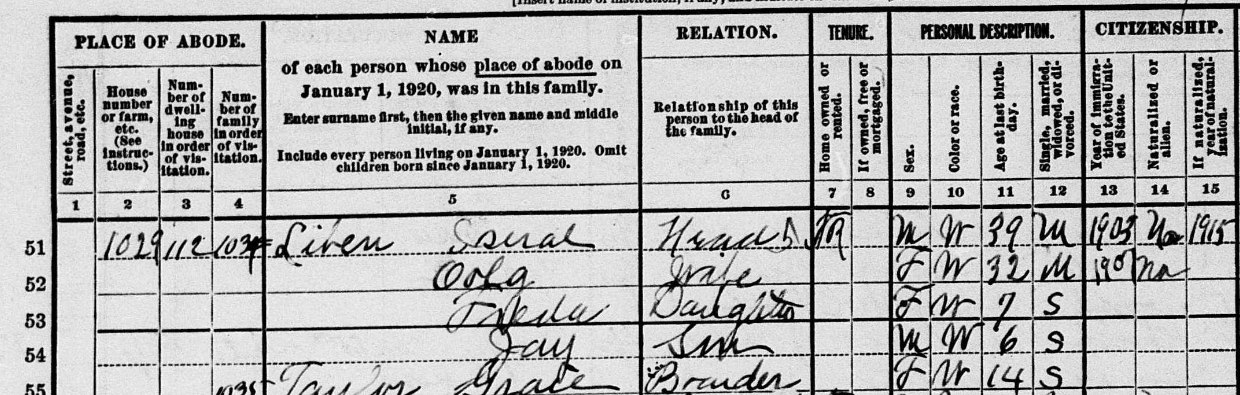 PLACE OF ABODE.
NAME
of each person whose place of abode on
January 1, 1920, was in this family.
Enter surname first, then the given name and middle
initial, if any.
Include every person living on January 1, 1920. Omit
children born since January 1, 1920.
RELATION.
Relationship of this
person to the head of
the family.
TENURE.
PERSONAL DESCRIPTION.
CITIZENSHIP.
Street, avenue,
road, etc.
House
number
or farm,
etc.
(See
instruc-
tions.)
Num-
ber of
dwell-
ing
house
in order
of vis-
itation.
Num-
ber of
family
in order
of vis-
itation.
Home owned or
rented.
If owned, free or
mortgaged.
Sex.
Color or race.
Age at last birth-
day.
Single, married,
widowed, or di-
vorced.
Year of immigra-
tion to the Unit-
ed States.
Naturalized or
alien.
If naturalized,
year of natural-
ization.
1 2 3 4 5 6 7 8 9 10 11 12 13 14 15
51 1029 112 1034 Liven Head R M W 39 M 1903 Na 1915
52 Wife F W 32 M 190 Na
53 Freda Daughter F W 7 S
54 Jay Son M W 6 S
55 1035 Taylor Grace F W 14 S